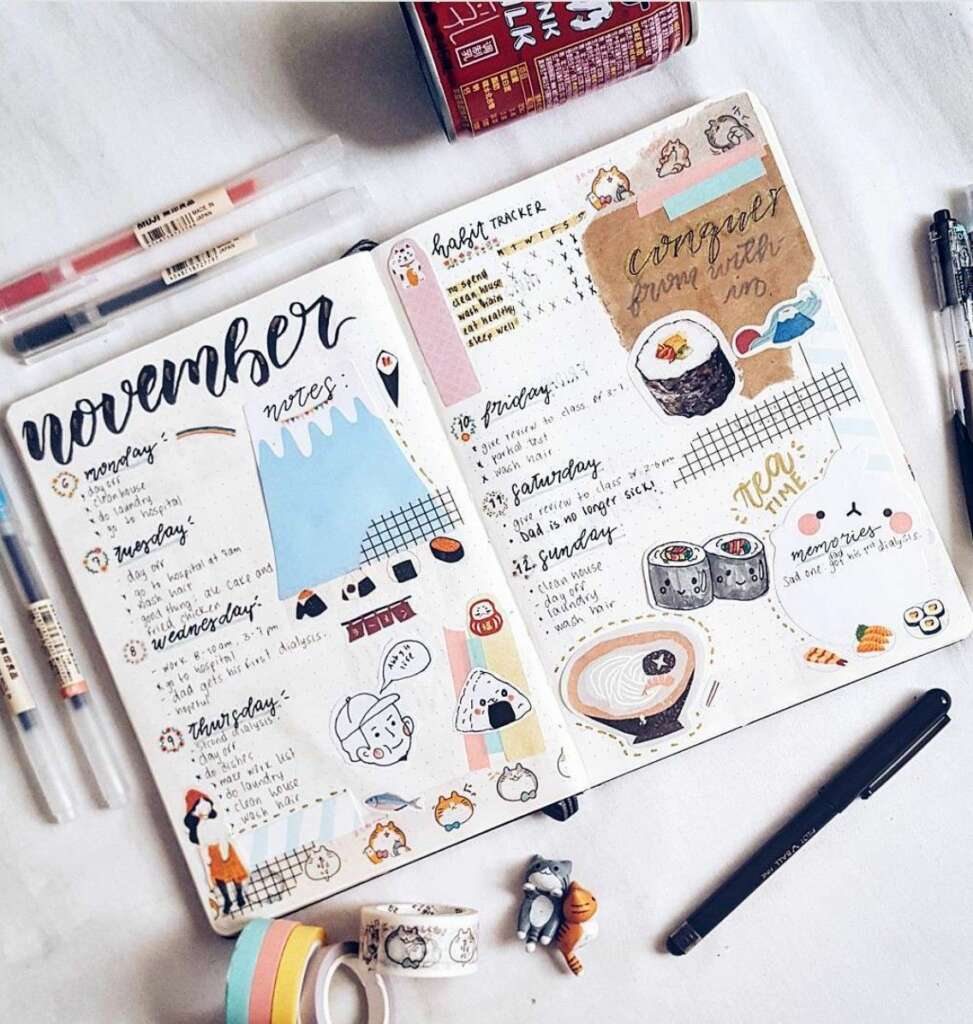 MILK
MUJI 無印良品
MADE IN
JAPAN
november
notes:
6 monday
day off
clean house
do laundry
go to hospital
7 tuesday
day off
go to hospital at 9am
wash hair
good thing: ate cake and
fried chicken
8 wednesday
work 8-10am, 3-7pm
go to hospital
dad gets his first dialysis.
hopeful
9 thursday
second dialysis
day off
do dishes
make work list
do laundry
clean house
wash hair
habit TRACKER
M T W T F S S
no spend
clean house
wash hair
eat healthy
sleep well
conquer
from with-
in.
10 friday
give review to class
partial test
wash hair
11 saturday
give review to class
dad is no longer sick!
12 sunday
clean house
day off
laundry
wash hair
tea
TIME
memories
sad one: dad
got his 1st dialysis.